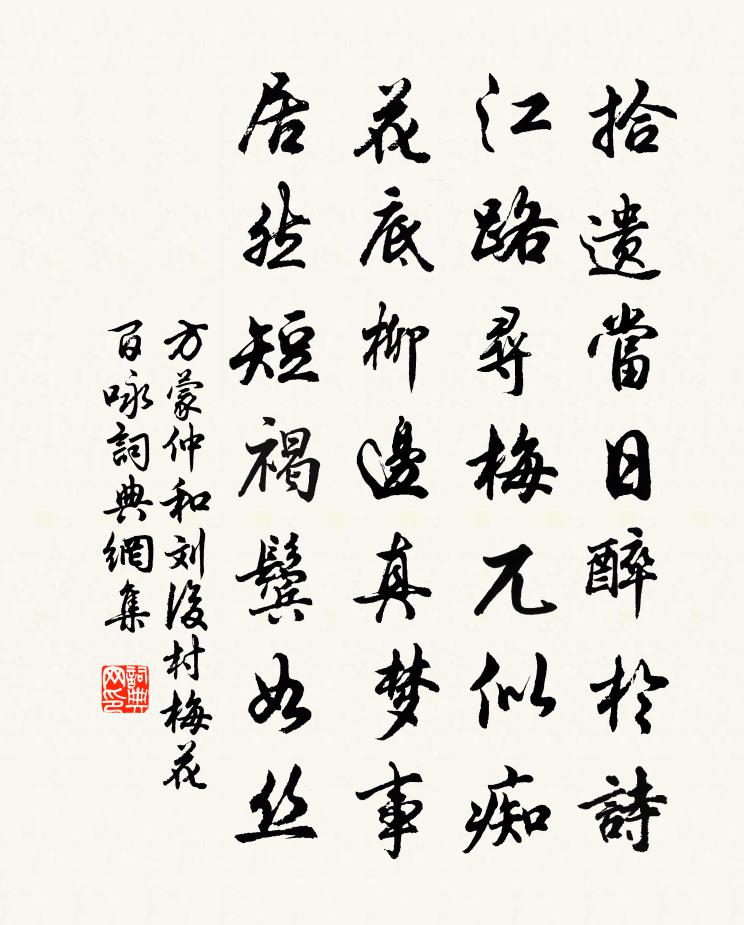 拾遺當日醉於詩
江路尋梅兀似痴
花底柳邊真梦事
居然短褐鬓如丝
方蒙仲和刘後村梅花
百咏詞典網集
詞典网印